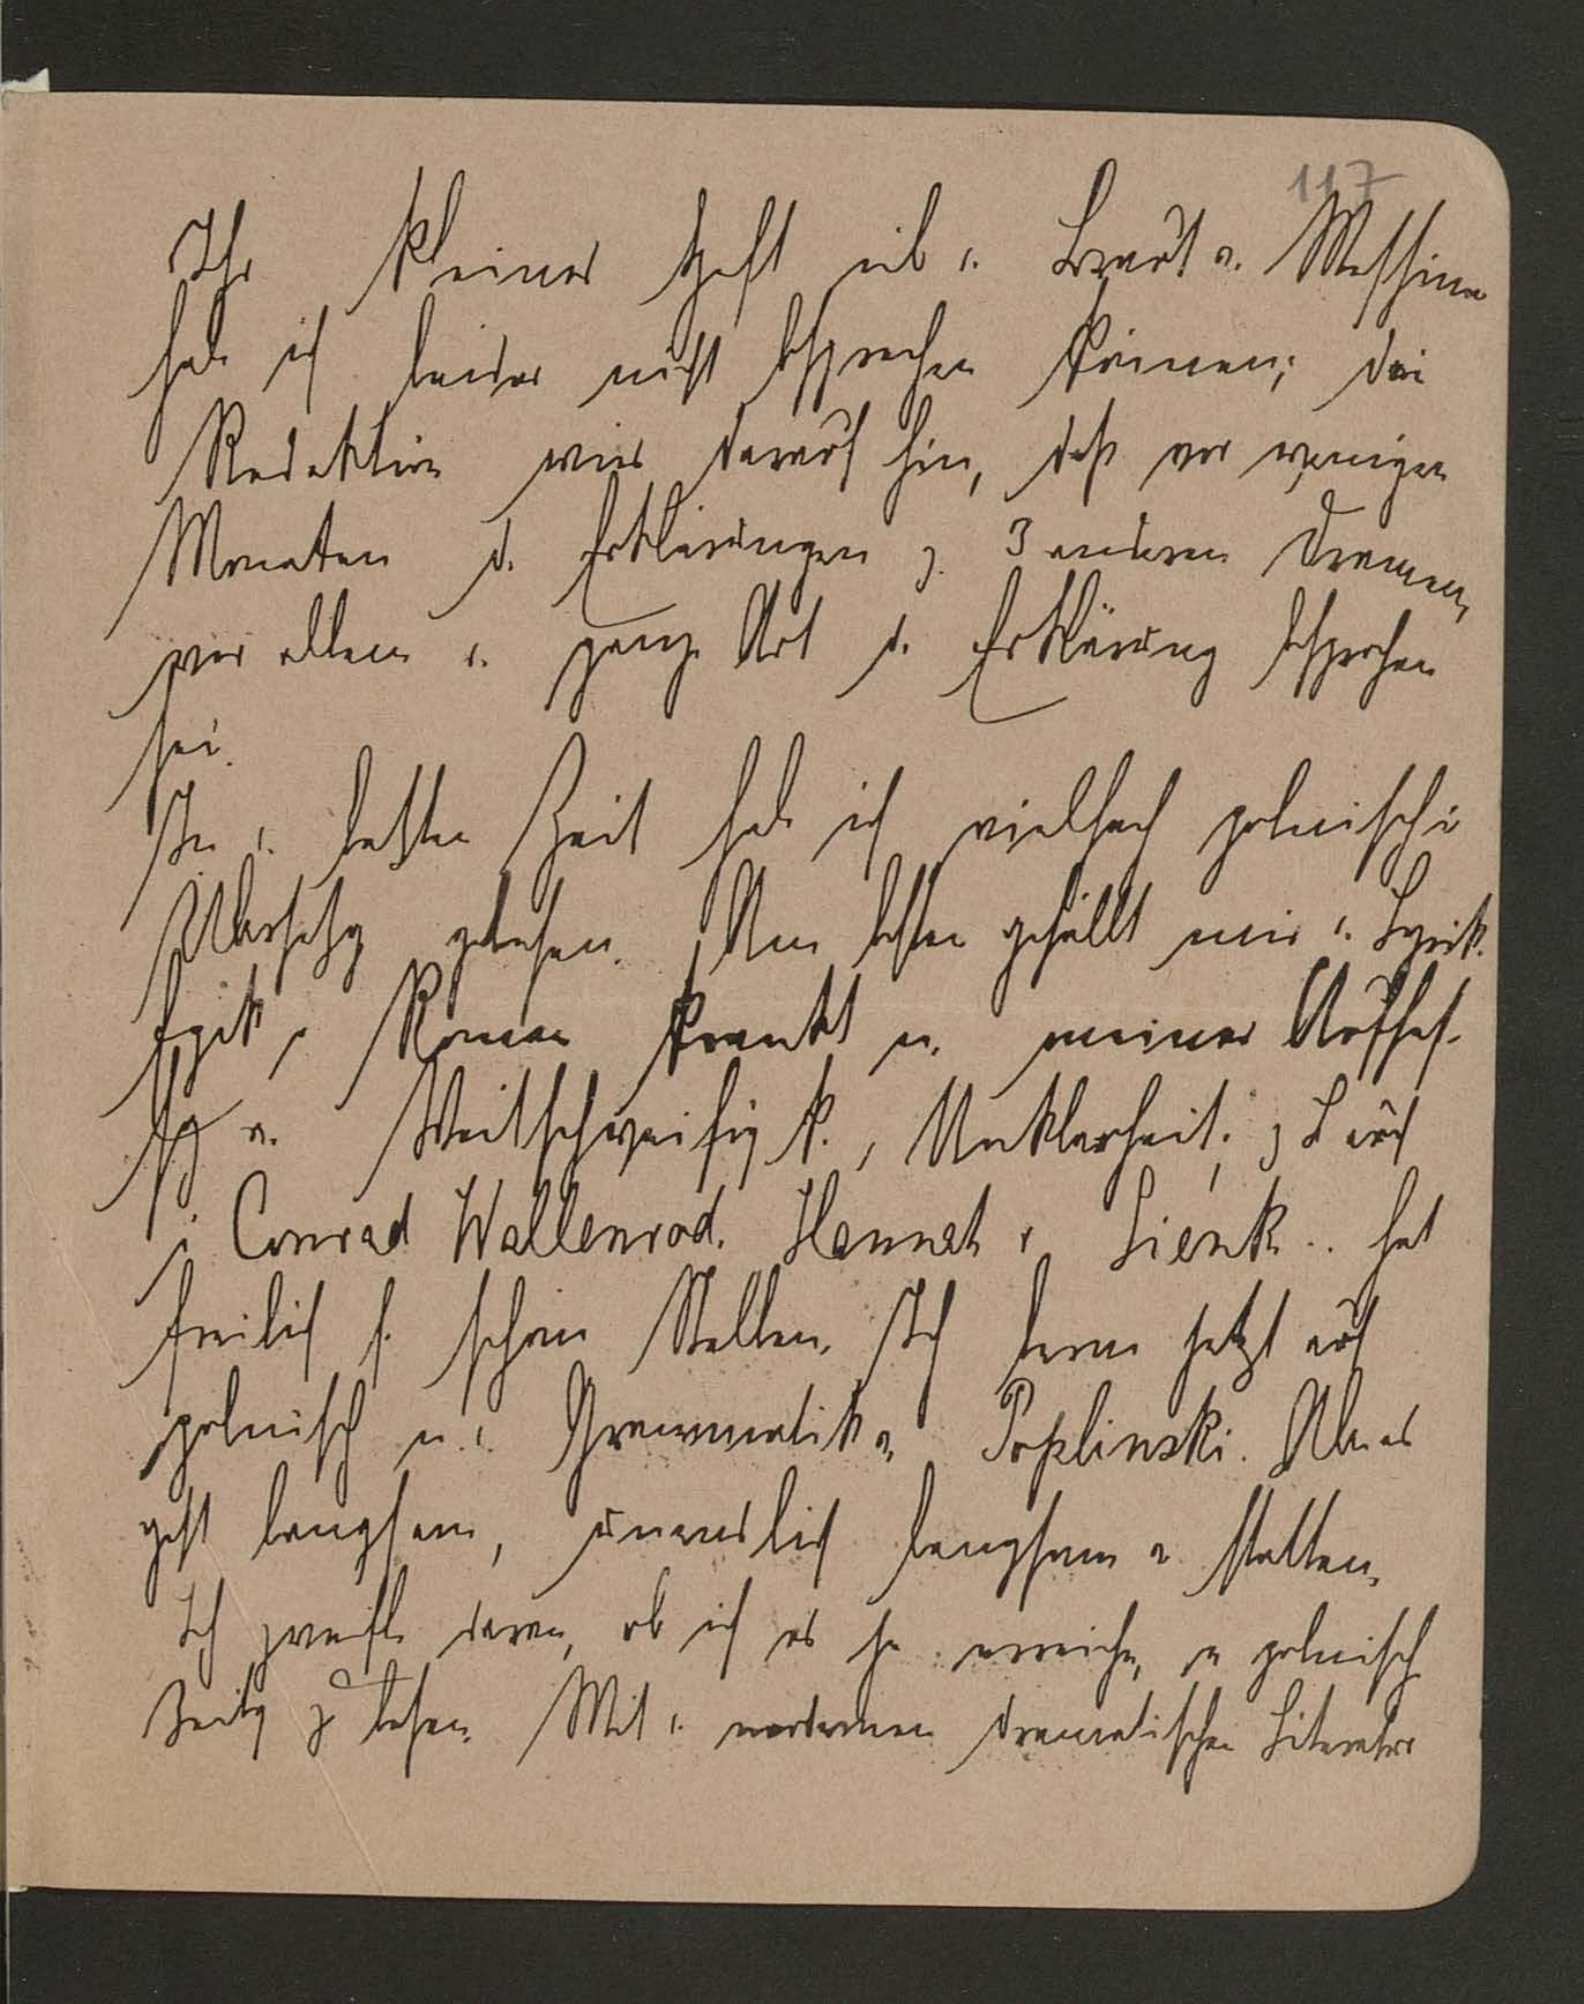 117
Ihr kleines Heft üb d. Braut v. Messina
hab ich leider nicht besprechen können; die
Redaktion wies darauf hin, daß vor wenigen
Monaten d. Erklärungen z. 3 anderen Dramen,
vor allem d. ganze Art d. Erklärung besprochen
sei.
In d. letzten Zeit hab ich vielfach polnische
Übersetzg gelesen. Am besten gefällt mir d. Lyrik.
Epik, Roman krankt n. meiner Auffas-
sg a. Weitschweifigk., Unklarheit; z B auch
i Conrad Wallenrod. Hannah v Sienk.. hat
freilich s. schöne Stellen. Ich lerne jetzt auch
polnisch n. d. Grammatik v. Poplinski. Aber es
geht langsam, unendlich langsam v. statten.
Ich zweifle daran, ob ich es je erreiche, e polnisch
Zeitg zu lesen. Mit d. modernen dramatischen Literatur